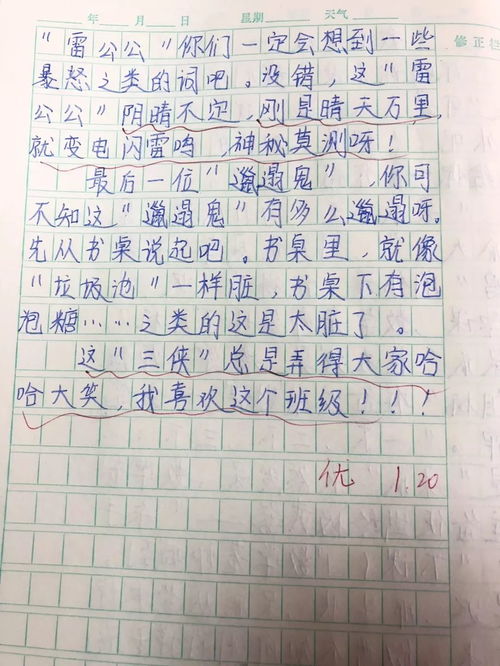 年 月 日 星期 天气
修正栏
"雷公公"你们一定会想到一些
暴怒之类的词吧。没错，这"雷
公公"阴晴不定，刚是晴天万里，
就变电闪雷鸣，神秘莫测呀！
最后一位"邋遢鬼"，你可
不知这"邋遢鬼"有多么邋遢呀。
先从书桌说起吧。书桌里，就像
"垃圾池"一样脏，书桌下有泡
泡糖……之类的这是太脏了。
这"三侠"总是弄得大家哈
哈大笑，我喜欢这个班级！！！
优 1.20